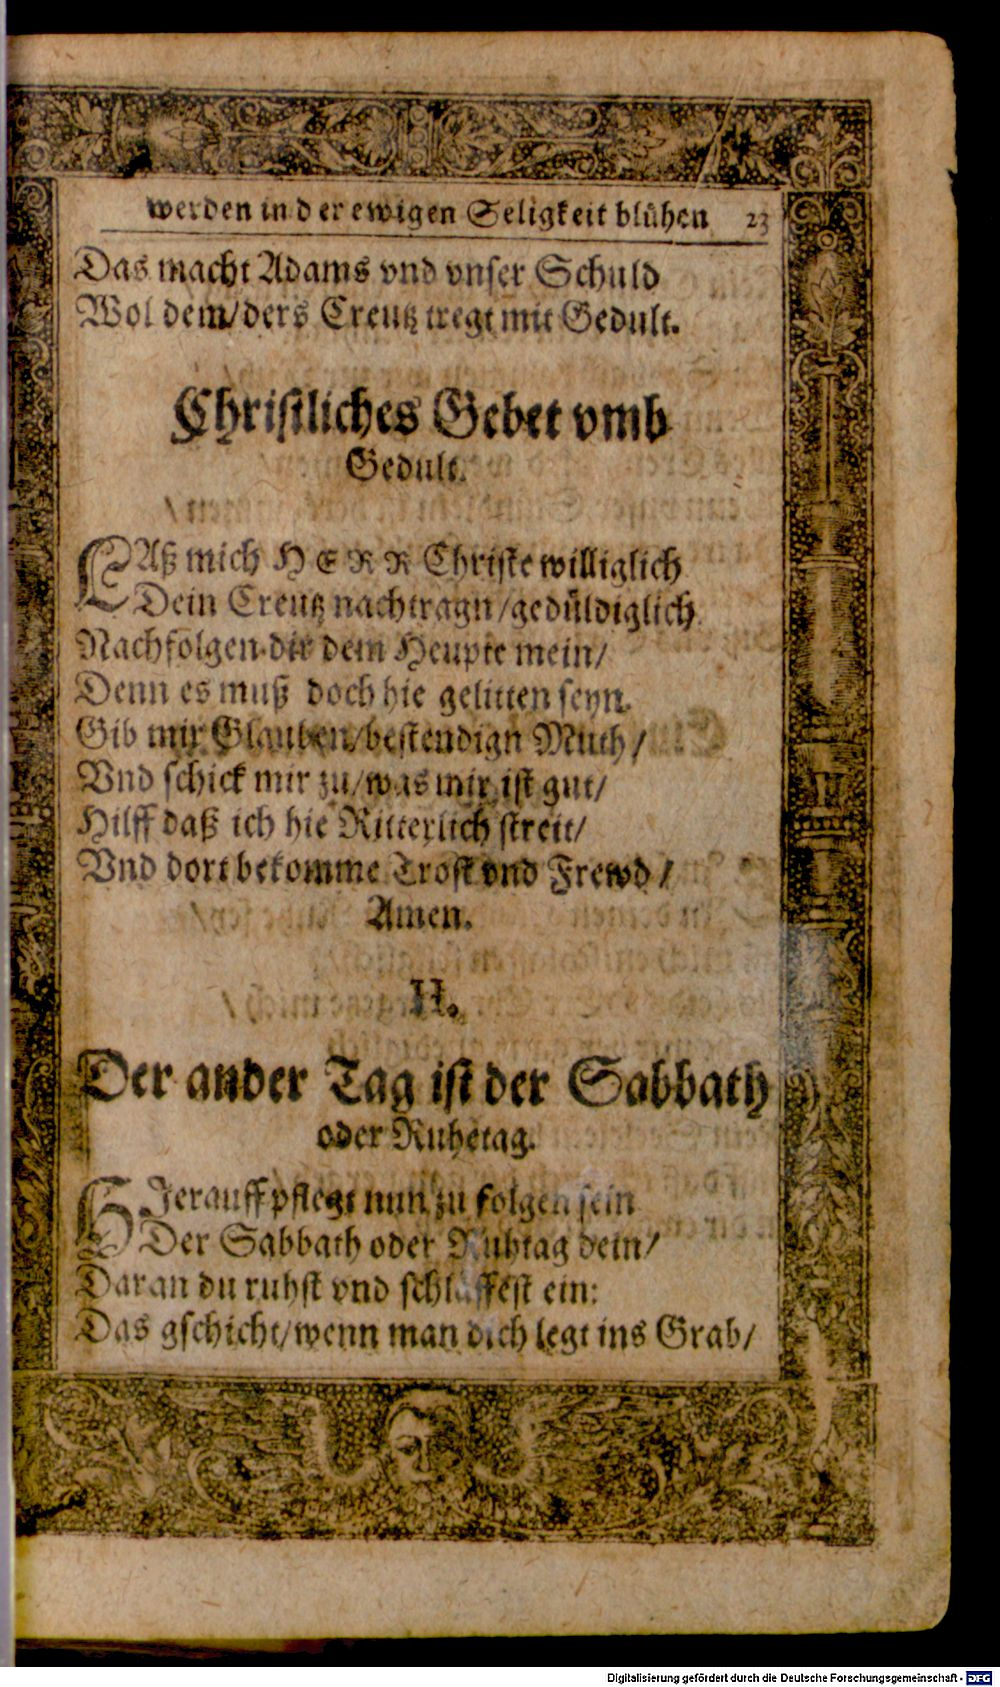 werden in der ewigen Seligkeit blühen 23
Das macht Adams vnd vnser Schuld
Wol dem/ders Creutz tregt mit Gedult.
Christliches Gebet vmb
Gedult.
LAß mich HERR Christe williglich
Dein Creutz nachtragn/gedüldiglich
Nachfolgen dir dem Heupte mein/
Denn es muß doch hie gelitten seyn.
Gib mir Glauben/bestendign Muth/
Vnd schick mir zu/was mir ist gut/
Hilff daß ich hie Ritterlich streit/
Vnd dort bekomme Trost vnd Frewd/
Amen.
II.
Der ander Tag ist der Sabbath
oder Ruhetag.
HJerauff pflegt nun zu folgen fein
Der Sabbath oder Ruhtag dein/
Daran du ruhst vnd schlaffest ein:
Das gschicht/wenn man dich legt ins Grab/
Digitalisierung gefördert durch die Deutsche Forschungsgemeinschaft - DFG